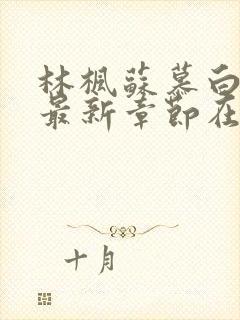 林楓蘇慕白
最新章節在
十月